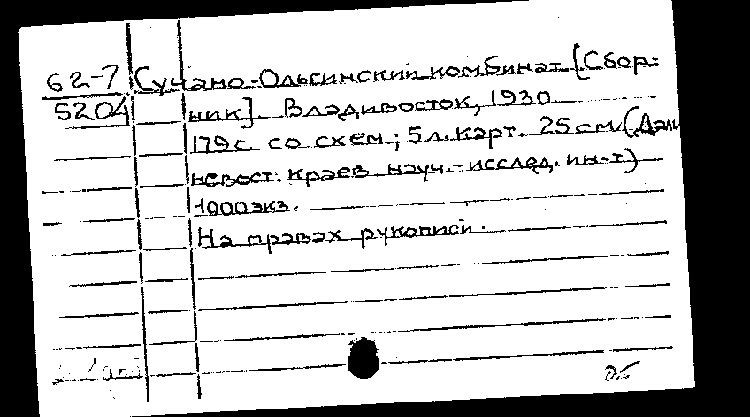 62-7 Сучано-Ольгинский комбинат [Сбор-
5204 ник]. Владивосток, 1930
179с со схем; 5л.карт. 25см (Даль
невост. краев. науч.-исслед. ин-т)
1000экз.
На правах рукописи.